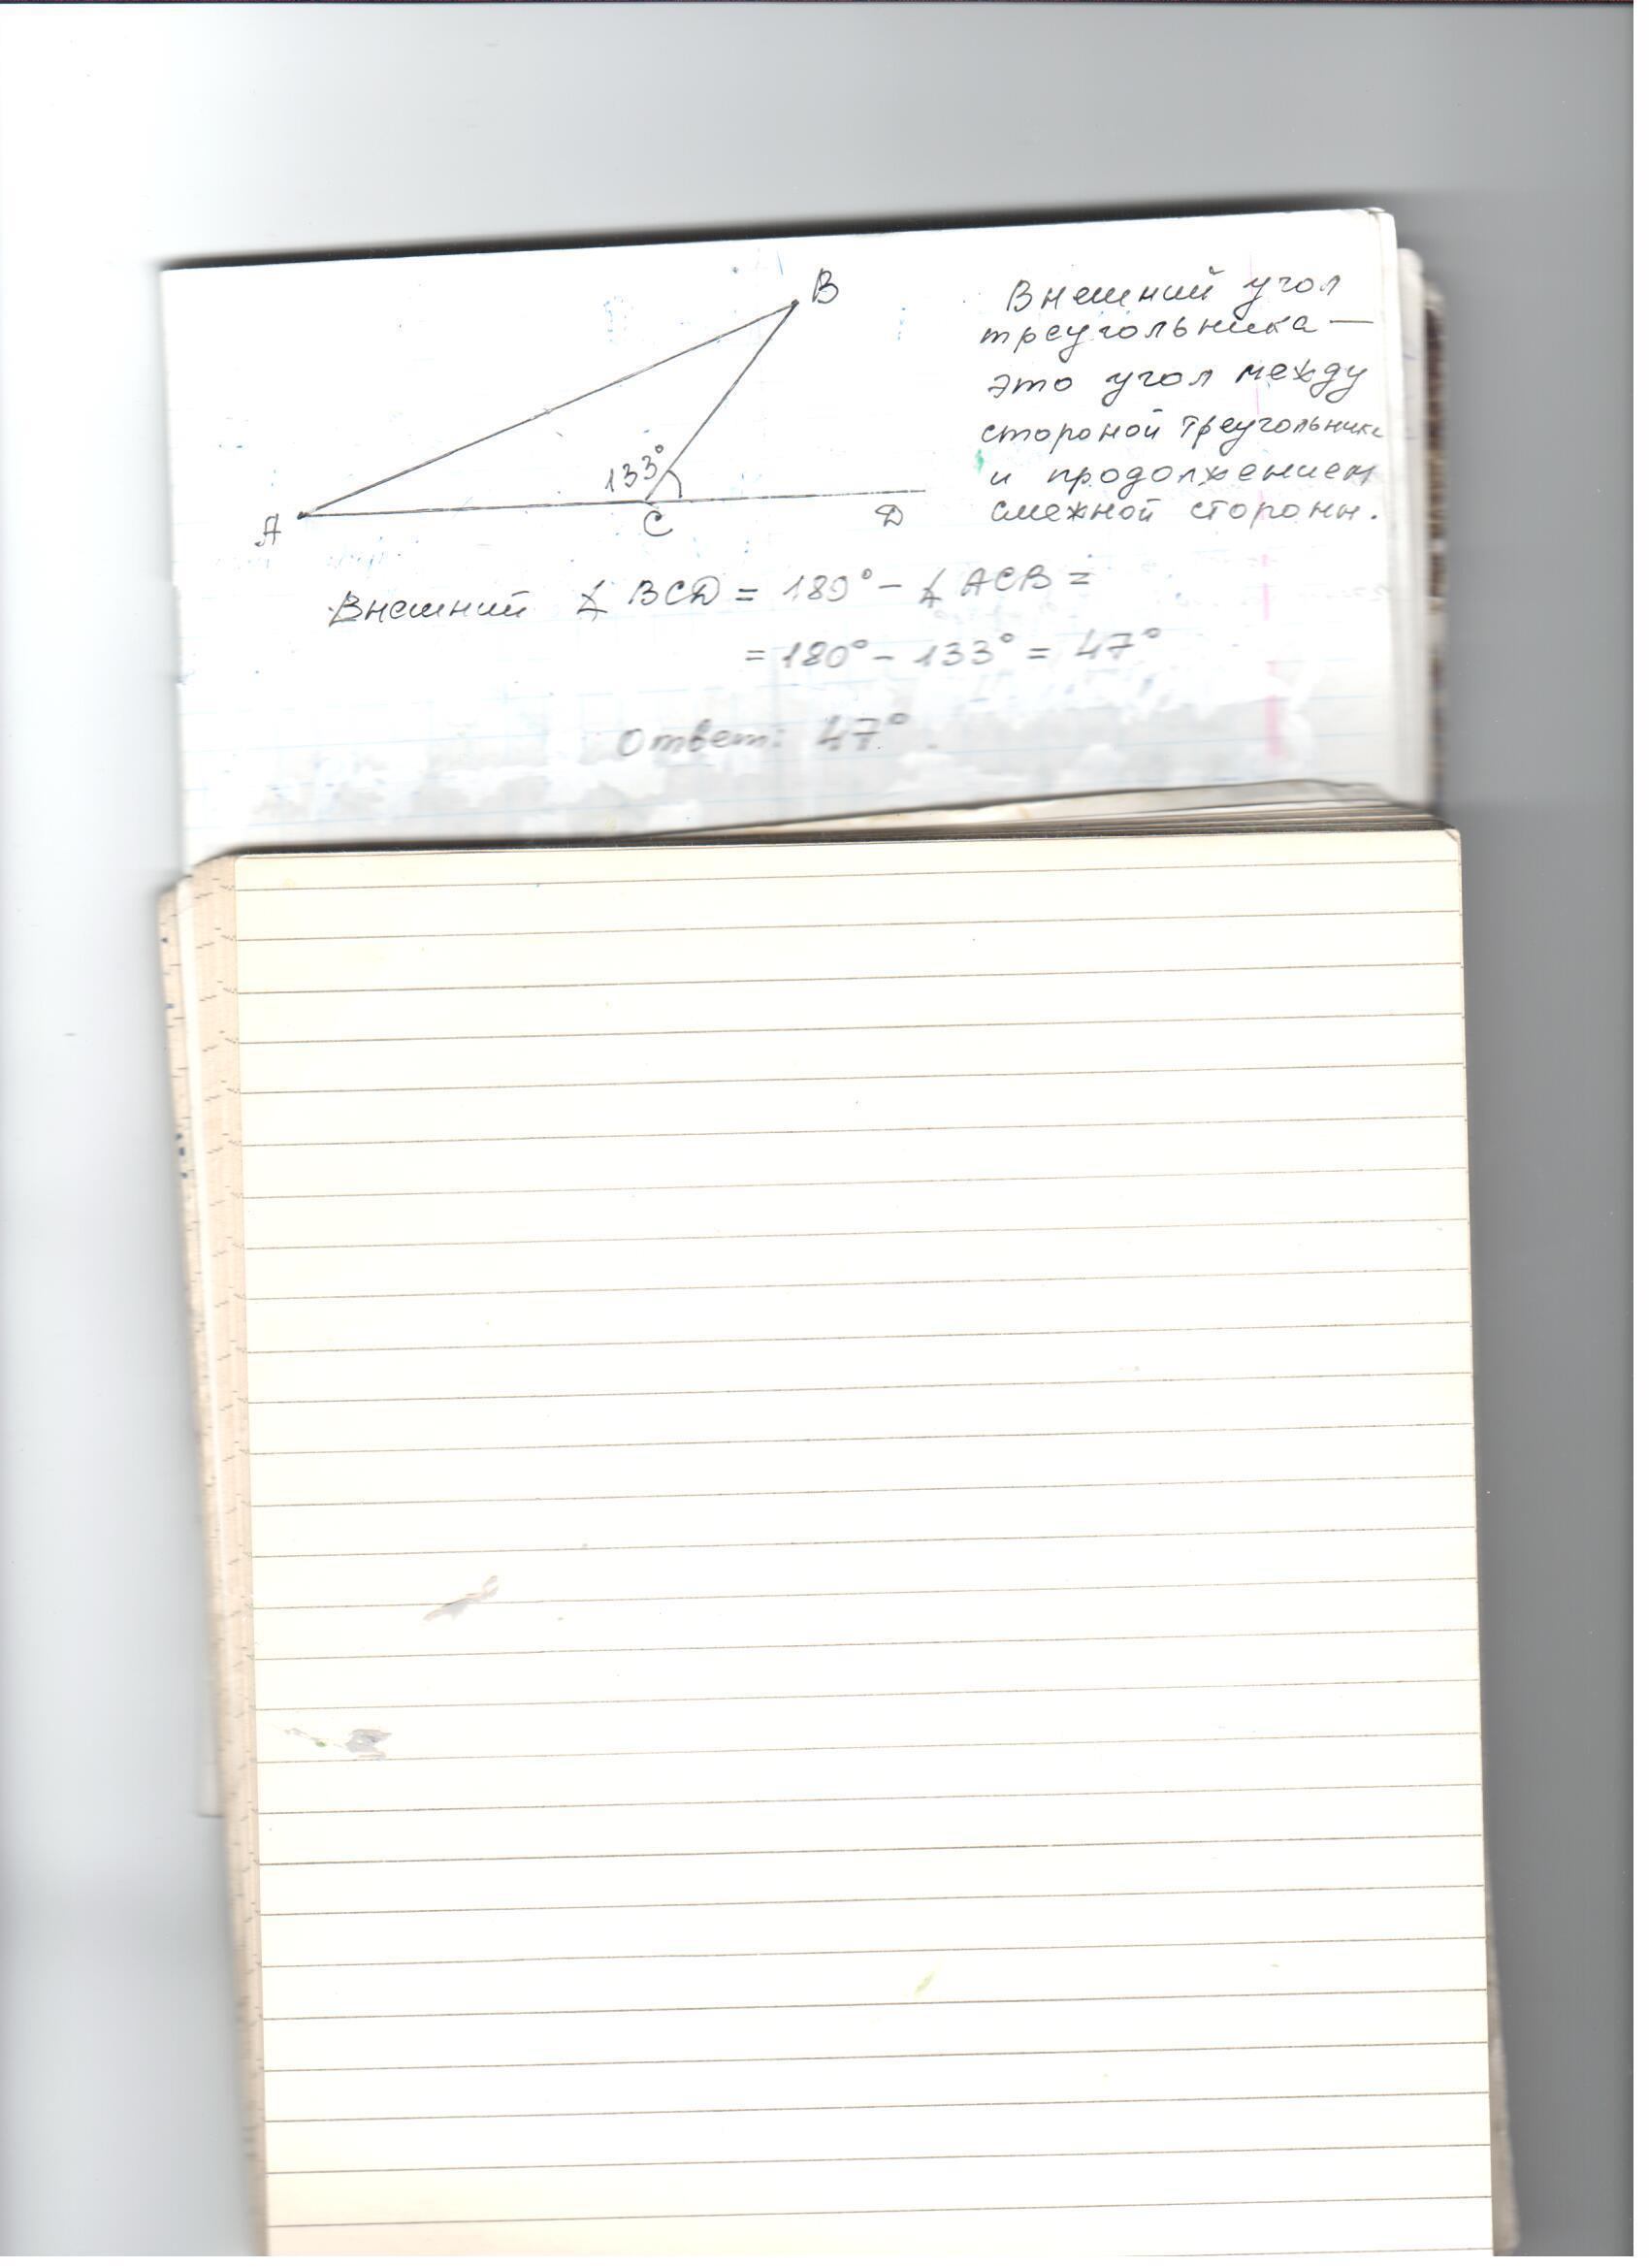 B
133°
A
C
D
Внешний угол
треугольника —
это угол между
стороной треугольника
и продолжением
смежной стороны.
Внешний ∡ BCD = 180° - ∡ ACB =
= 180° - 133° = 47°
Ответ: 47°.